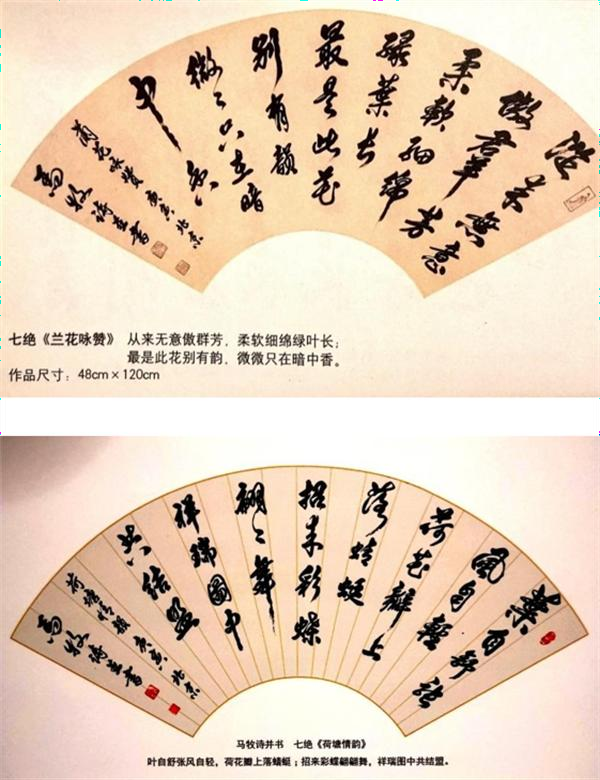 從来無意
傲羣芳
柔軟細綿
綠葉长
最是此花
别有韻
微々只在暗
中香
蘭花咏贊 庚寅 北京
馬牧詩並書
七绝《兰花咏赞》 从来无意傲群芳，柔软细绵绿叶长；
最是此花别有韵，微微只在暗中香。
作品尺寸：48cm×120cm
葉自舒張
風自輕
荷花瓣上
落蜻蜓
招来彩蝶
翩々舞
祥瑞圖中
共結盟
荷塘情韻 庚寅 北京
馬牧詩並書
马牧诗并书 七绝《荷塘情韵》
叶自舒张风自轻，荷花瓣上落蜻蜓；招来彩蝶翩翩舞，祥瑞图中共结盟。